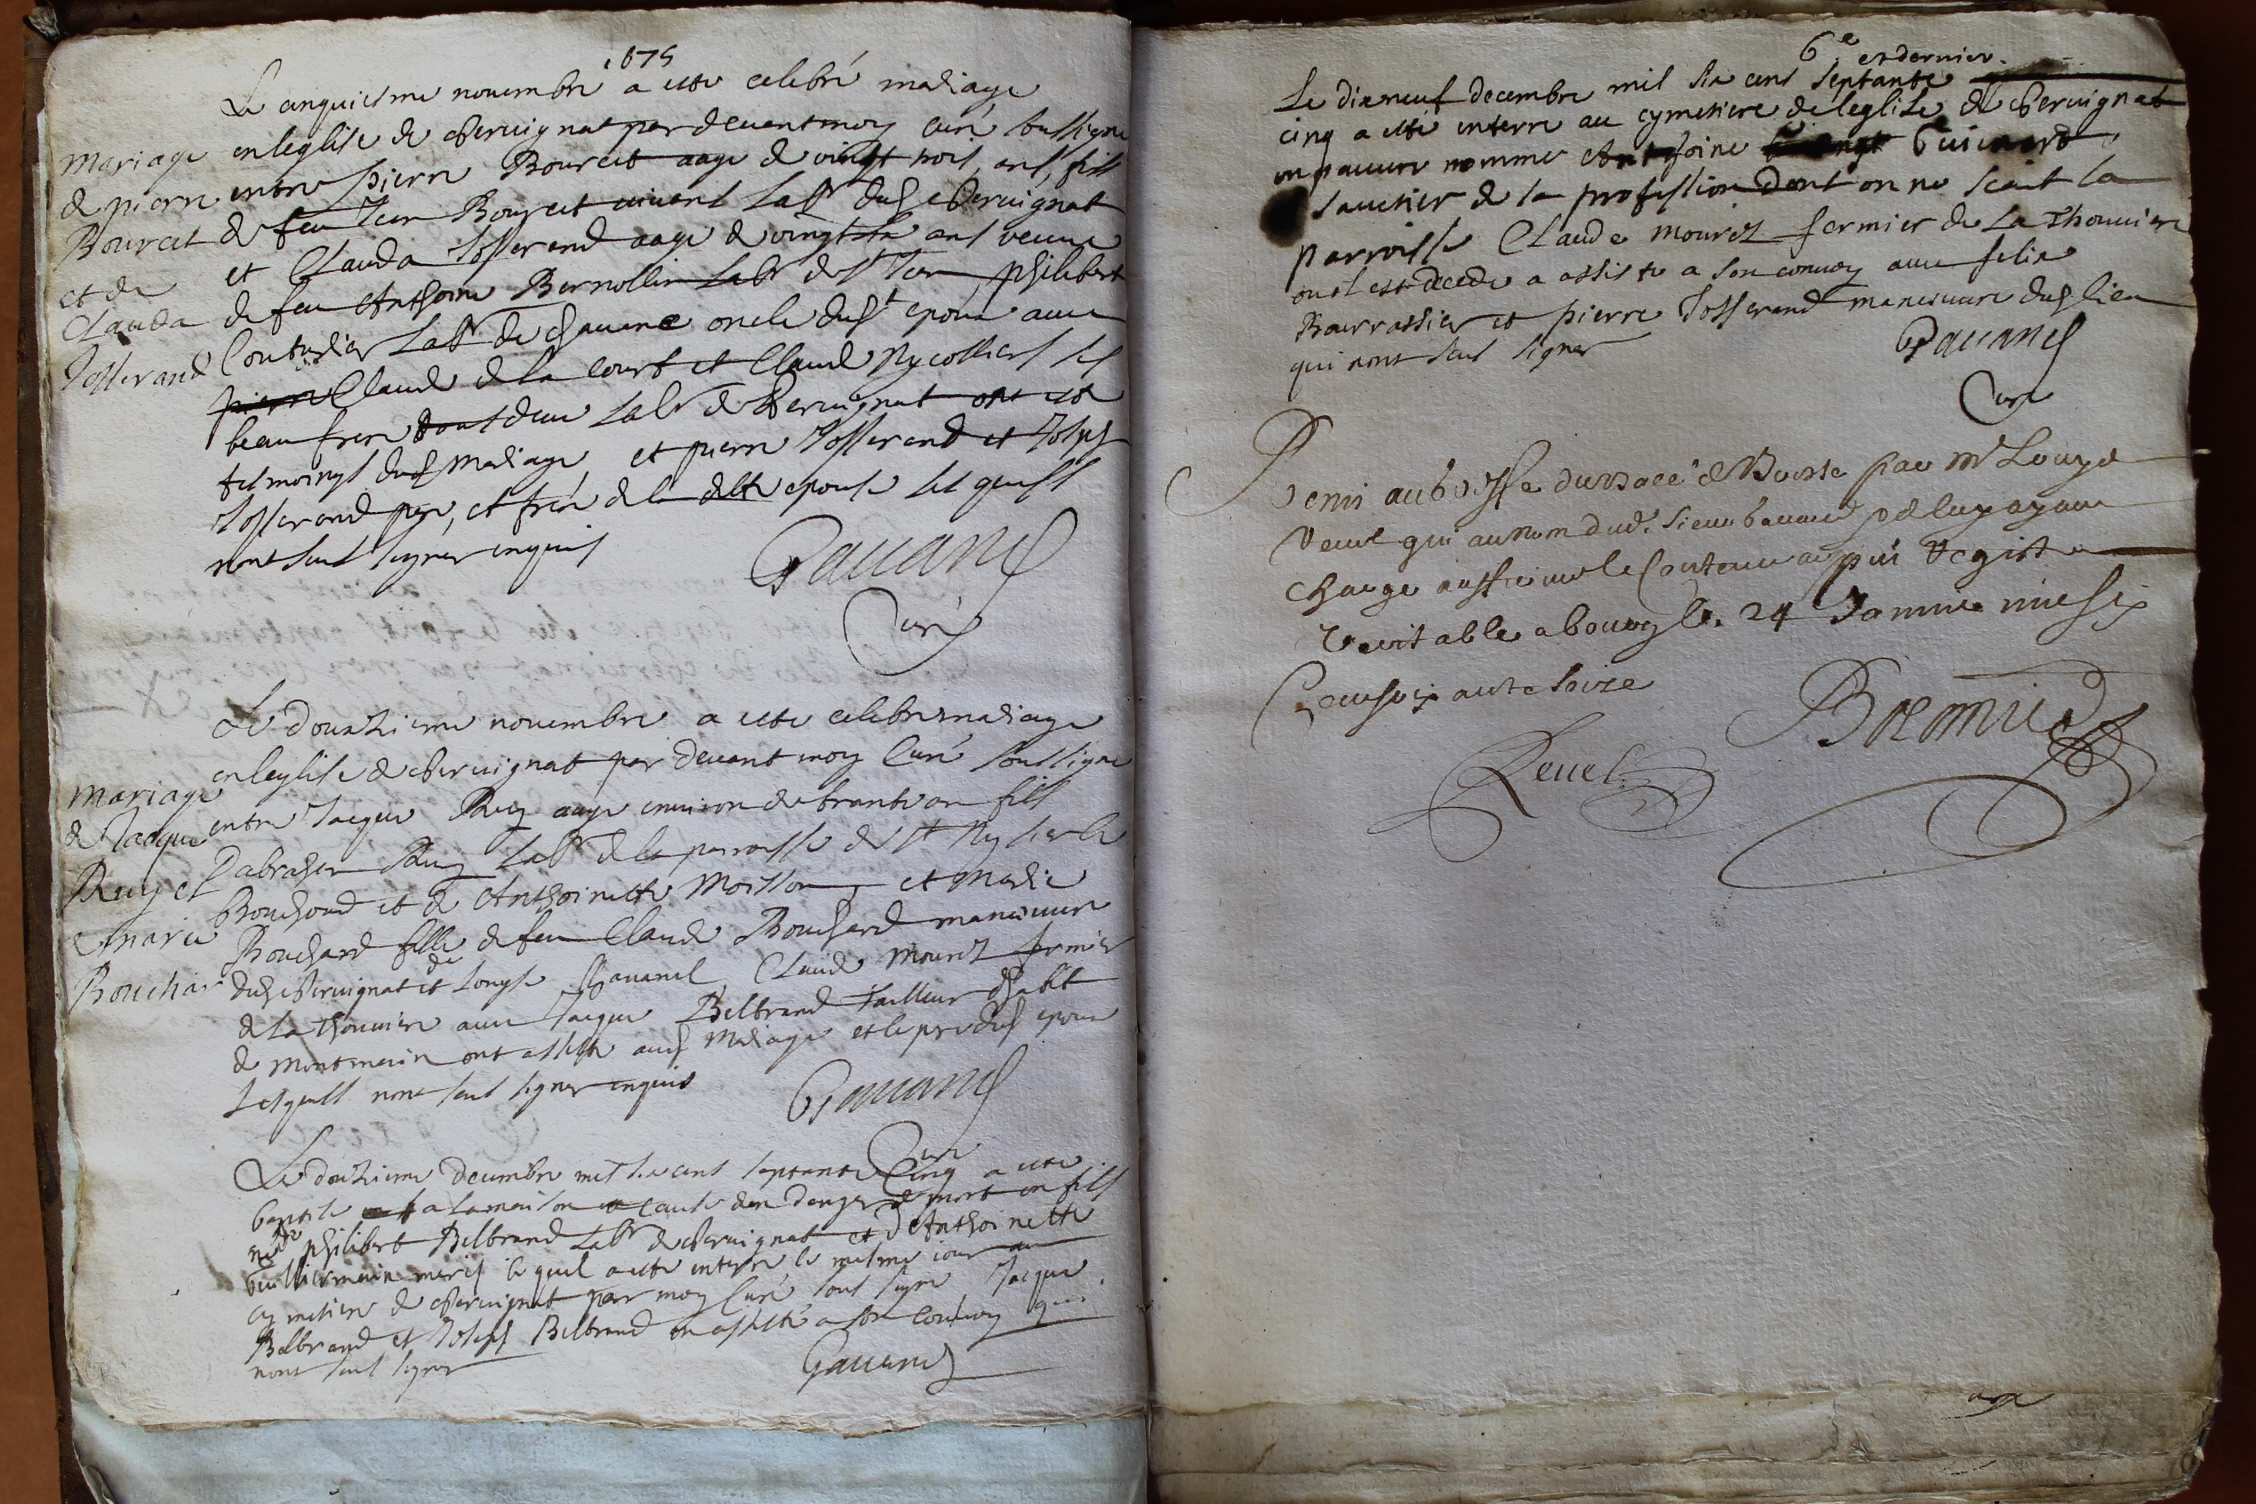 1675
Le cinquiesme novembre a esté celebré mariage
en leglise de chervignat par devant moy curé soussigné
entre pierre Bourcet aagé de vingt trois ans, fils
de feu Jean Bourcet vivant labr dud chervignat
et Clauda Josserand aagé de vingt six ans veuve
de feu Anthoine Bernollin labr de st Jean, philibert
Couturier labr de chavane oncle dudt epoux avec
pierre Claude de la Court et Claude Nycollier ses
beau frere tout deux labr de chervignat ont esté
tesmoings dud mariage, et pierre Josserand et Joseph
Josserand pere, et frere de la ditte epouse lesquels
nont sceu signer enquis
Mariage
de pierre
Bourcet
et de
Clauda
Josserand
Gavand
Curé
Le douziesme novembre a esté celebré mariage
en leglise de chervignat par devant moy Curé soussigné
entre Jacque Ruy aagé environ de trante an fils
Dabraham Ruy labr de la paroisse de st Ny
Bouchoud et de Anthoinette Moisson et Marie
Bouchard fille de feu Claude Bouchard maneuvre
dud chervignat et de Louyse Chavanel, Claude Mourez fermier
de la Thouviere avec Jacque Belbrand tailleur dhabit
de Montmerin ont assisté aud Mariage et le pere dud epoux
lesquels nont sceu signer enquis
Mariage
de Jacque
Ruy et
marie
Bouchar
Gavand
Curé
Le douziesme decembre mil six cent septante Cinq a esté
baptisé a la maison a cause dun danger de mort un fils
né de philibert Belbrand labr de chervignat et dAnthoinette
Guilliermin mariés lequel a esté enterré le mesme jour au
cymetiere de chervignat par moy Curé sous signé Jacque
Belbrand et Joseph Belbrand on assisté a son convoy qui
nont sceu signer
Gavand
6e et dernier.
Le dixneuf decembre mil six cens septante
cinq a esté enterré au cymetiere de leglise de chervignat
un pauvre nommé Anthoine Guinard
savetier de sa profession dont on ne scait la
parroisse Claude mourez fermier de la Thouviere
ou il est decedé a assisté a son convoy avec felix
Bourrassier et pierre Josserand maneuvre dud lieu
qui nont sceu signer
Gavand
Curé
Remi au Greffe du Bce de Bresse par Mr Louys
Revel qui au nom dud. sieur
charge aussi que le Contenu au pnt Registre
veritable a bourg le 24 Janvier mil six
Cens soixante seize
Revel
Bremied